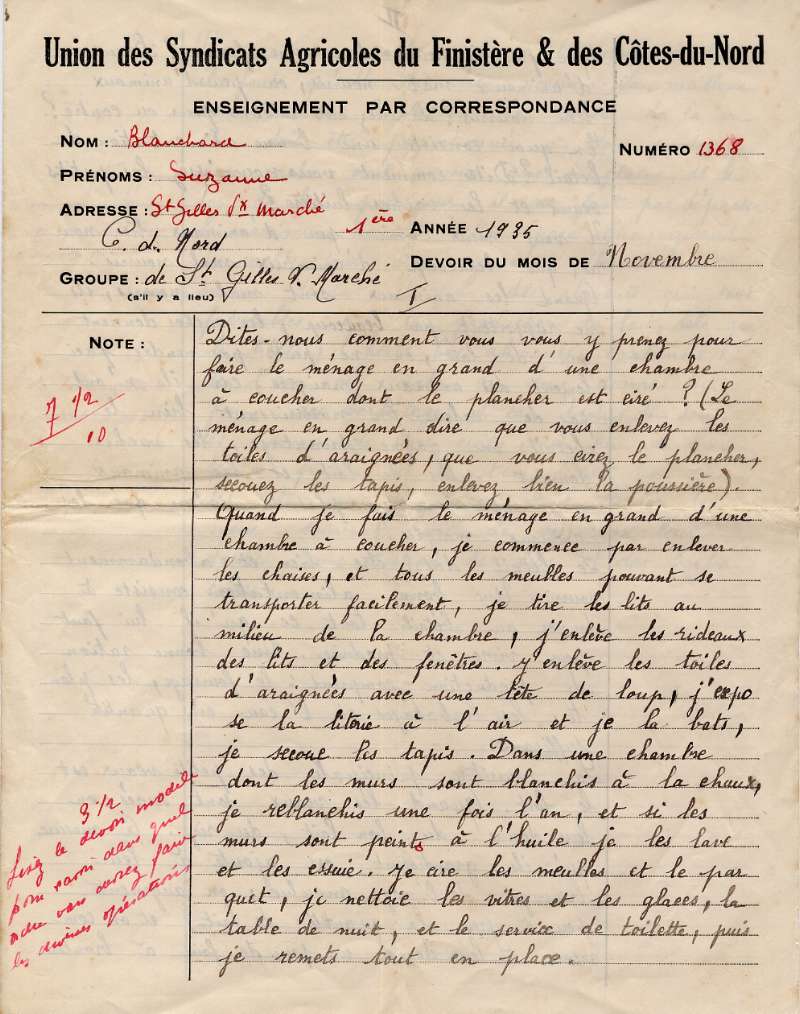 Union des Syndicats Agricoles du Finistère & des Côtes-du-Nord
ENSEIGNEMENT PAR CORRESPONDANCE
NOM : Blanchard
NUMÉRO 1368
PRÉNOMS : Suzanne
ADRESSE : St Gilles Vx Marché
C. d. Nord
1ère ANNÉE 1935
DEVOIR DU MOIS DE Novembre
GROUPE : de St Gilles V. Marché
(s'il y a lieu)
I
NOTE :
7 1/2
10
Dites-nous comment vous vous y prenez pour
faire le ménage en grand d'une chambre
à coucher dont le plancher est ciré ? (Le
ménage en grand dire que vous enlevez les
toiles d'araignées, que vous cirez le plancher,
secouez les tapis, enlevez bien la poussière).
Quand je fais le ménage en grand d'une
chambre à coucher, je commence par enlever
les chaises, et tous les meubles pouvant se
transporter facilement, je tire les lits au
milieu de la chambre, j'enlève les rideaux
des lits et des fenêtres. J'enlève les toiles
d'araignées avec une tête de loup, j'expo
se la literie à l'air et je la bats,
je secoue les tapis. Dans une chambre
dont les murs sont blanchis à la chaux,
je reblanchis une fois l'an, et si les
murs sont peints à l'huile je les lave
et les essuie. Je cire les meubles et le par
quet, je nettoie les vitres et les glaces, la
table de nuit, et le service de toilette, puis
je remets tout en place.
3 1/2
Lisez le devoir modèle
pour savoir dans quel
ordre vous devez faire
les diverses opérations